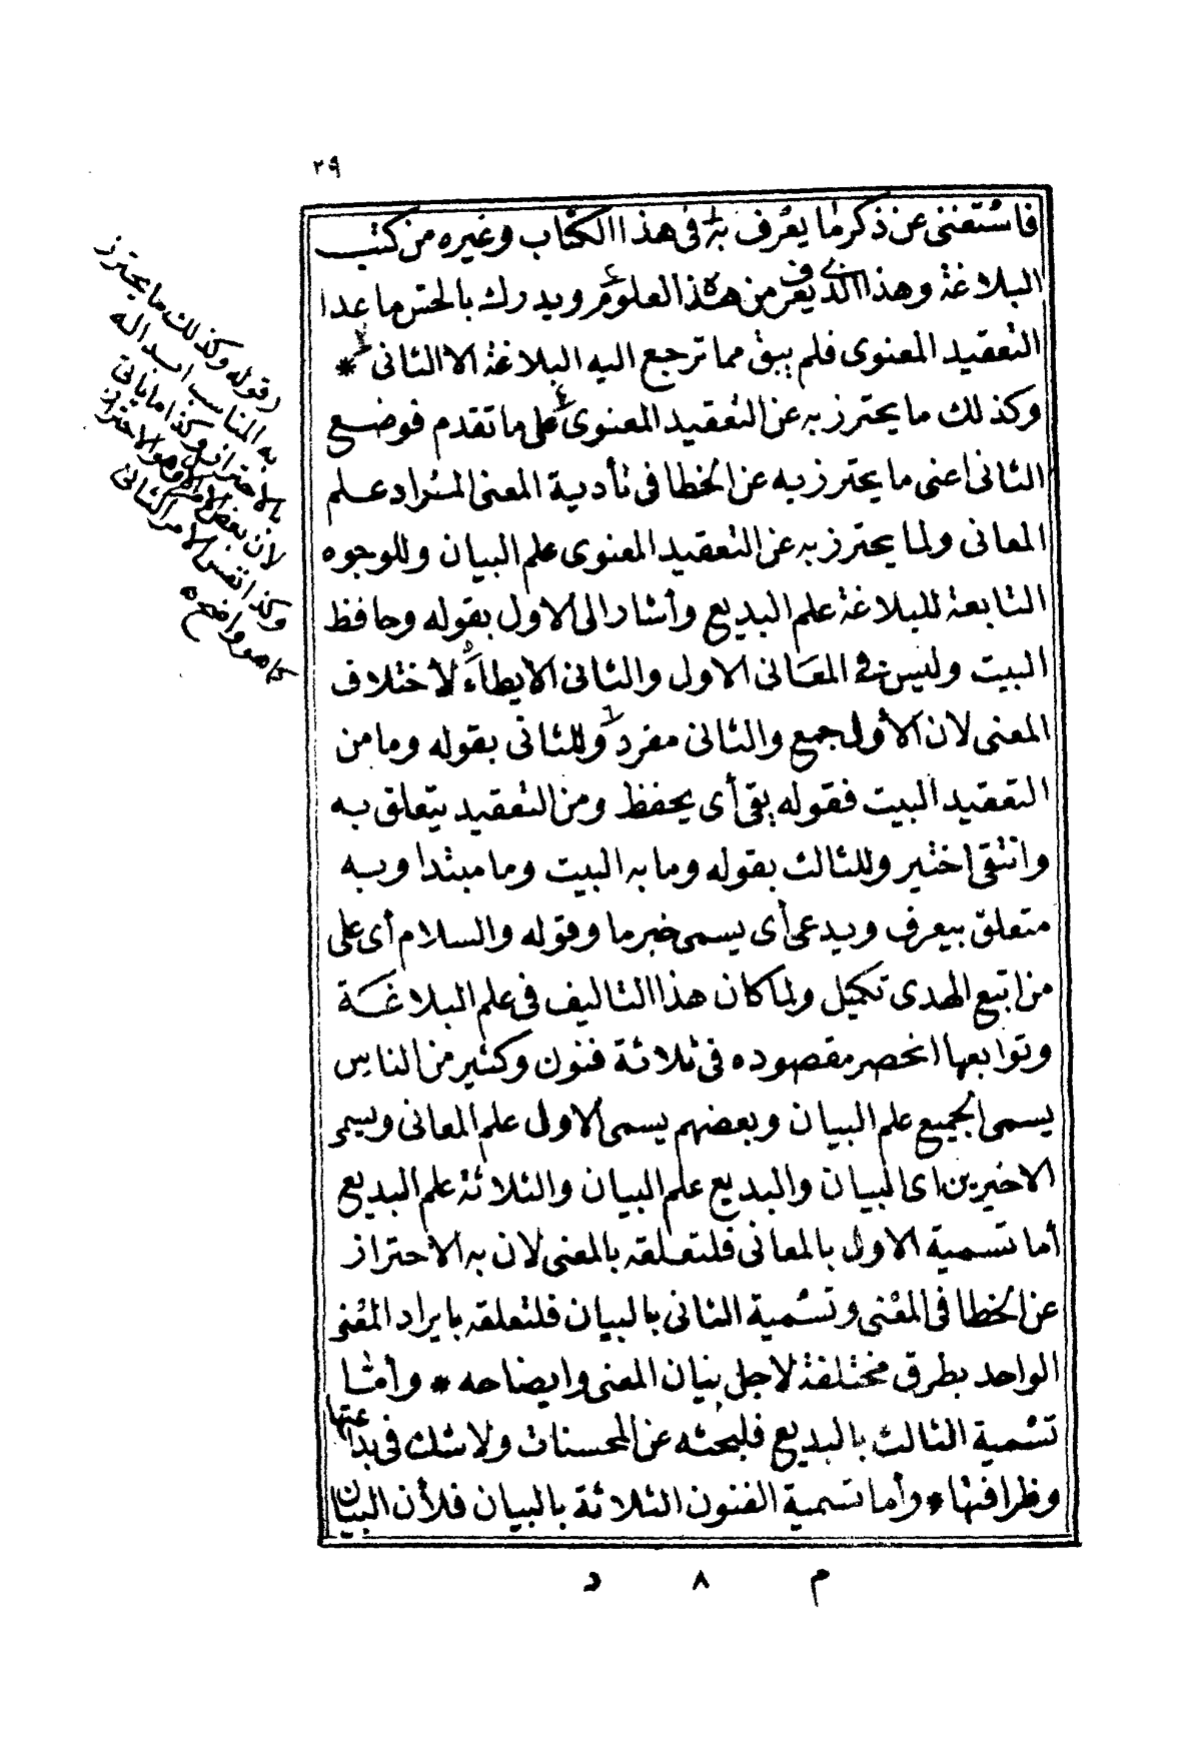 ٢٩
فاستغنى عن ذكر ما يعرف به فى هذا الكتاب وغيره من كتب
البلاغة وهذا الذى يعرف من هذه العلوم ويدرك بالحس ما عدا
التعقيد المعنوى فلم يبق مما ترجع اليه البلاغة الا الثانى *
وكذلك ما يحترز به عن التعقيد المعنوى على ما تقدم فوضع
الثانى اعنى ما يحترز به عن الخطا فى تأدية المعنى المراد علم
المعانى ولما يحترز به عن التعقيد المعنوى علم البيان وللوجوه
التابعة للبلاغة علم البديع وأشار الى الاول بقوله وحافظ
البيت وليس فى المعانى الاول والثانى الايطاء لاختلاف
المعنى لان الأول جمع والثانى مفرد وللثانى بقوله وما من
التعقيد البيت فقوله يقى أى يحفظ ومن التعقيد يتعلق به
وانتقى اختير وللثالث بقوله وما به البيت وما مبتدا وبه
متعلق بيعرف ويدعى أى يسمى خبر ما وقوله والسلام أى على
من اتبع الهدى تكميل ولما كان هذا التاليف فى علم البلاغة
وتوابعها انحصر مقصوده فى ثلاثة فنون وكثير من الناس
يسمى الجميع علم البيان وبعضهم يسمى الاول علم المعانى ويسمى
الاخيرين اى البيان والبديع علم البيان والثلاثة علم البديع
أما تسمية الاول بالمعانى فلتعلقه بالمعنى لان به الاحتراز
عن الخطا فى المعنى وتسمية الثانى بالبيان فلتعلقه بايراد المعنى
الواحد بطرق مختلفة لاجل بيان المعنى وايضاحه * وأما
تسمية الثالث بالبديع فلبحثه عن المحسنات ولا شك فى بداعتها
وظرافتها * وأما تسمية الفنون الثلاثة بالبيان فلأن البيان
م ٨ د
(قوله وكذلك ما يحترز
به المناسب ابداله
بالاحتراز وكذا ما ياتى
لان بعض الامر وهو الاحتراز
وكذا نفس الامر الثانى
كما هو واضح ه